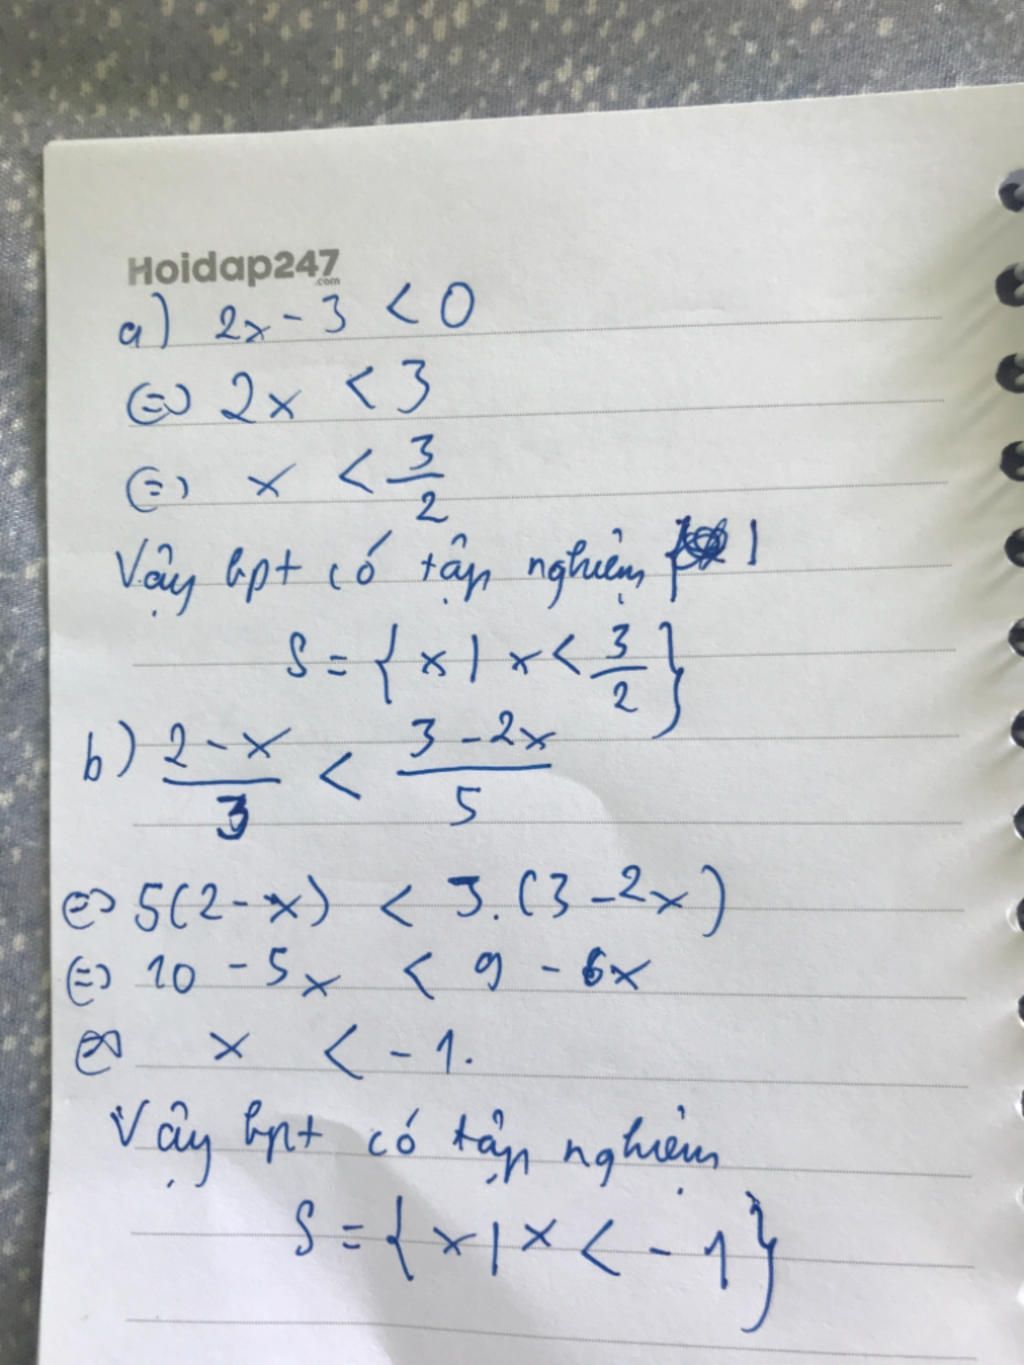 Hoidap247
.com
a) 2x - 3 < 0
⇔ 2x < 3
⇔ x < 3/2
Vậy bpt có tập nghiệm
S = {x | x < 3/2}
b) 2 - x/3 < 3 - 2x/5
⇔ 5(2 - x) < 3.(3 - 2x)
⇔ 10 - 5x < 9 - 6x
⇔ x < -1.
Vậy bpt có tập nghiệm
S = {x | x < -1}